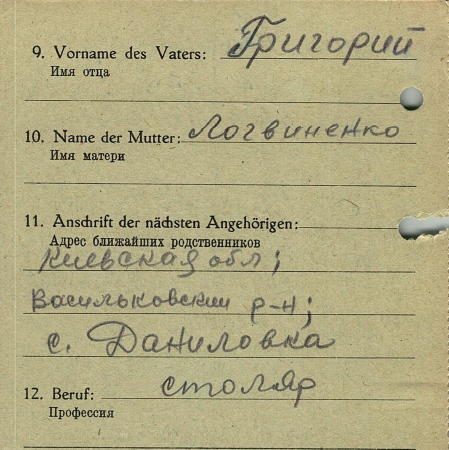 9. Vorname des Vaters: Григорий
Имя отца
10. Name der Mutter: Логвиненко
Имя матери
11. Anschrift der nächsten Angehörigen:
Адрес ближайших родственников
Киевская обл;
Васильковский р-н;
с. Даниловка
12. Beruf: столяр
Профессия